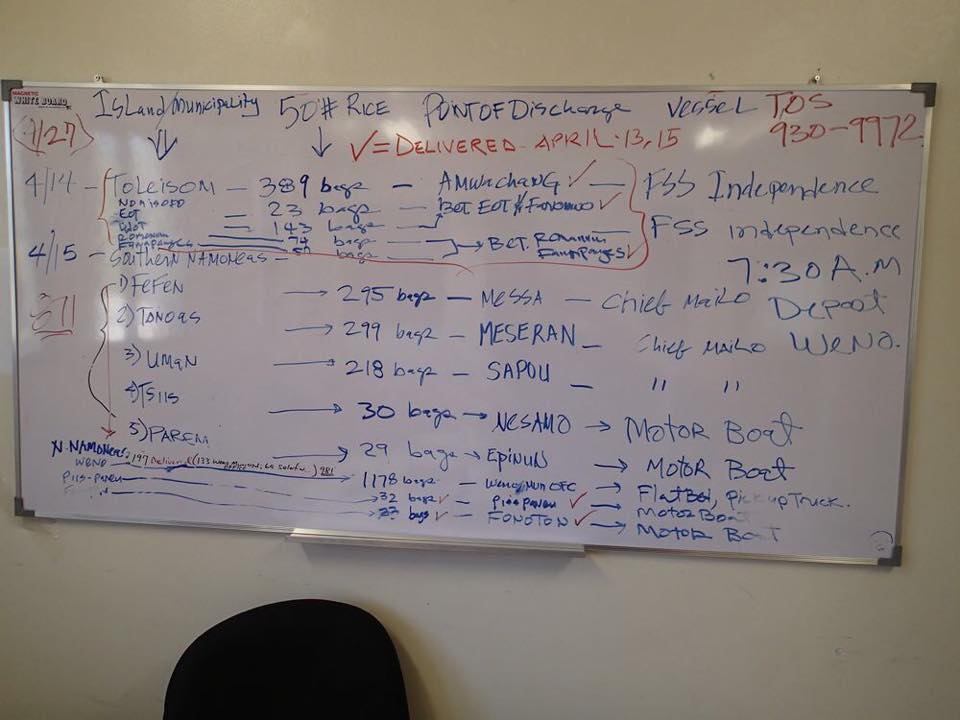 MAGNETIC
WHITE BOARD
Island/Municipality 50# RICE POINT OF Discharge Vessel TOS
930-9972
✓= DELIVERED APRIL 13, 15
4/14 - TOLEISOM - 389 bags - AMWACHANG ✓ - FSS Independence
23 bags - BET EOT & Fonomoo ✓
EOT = 143 bags
74 bags BET. Romanum FSS Independence
4/15 - Southern NAMONEAS - bags Fanapanges ✓
7:30 A.M
1) FEFEN → 295 bags - MESSA - Chief MAILO Depart
311
2) TONOAS → 299 bags - MESERAN - Chief MAILO WENO.
3) UMAN → 218 bags - SAPOU - " "
4) TSIIS → 30 bags → NESAMO → MOTOR Boat
5) PAREM → 29 bags → EPINUN → MOTOR Boat
N. NAMONEAS:
WENO 197 Delivered 1178 bags - → Flat Bed, Pickup Truck.
PIIS-Paneu 32 bags ✓ - Piispaneu ✓ → Motor Boat
bags ✓ - FONOTON ✓ → MOTOR Boat